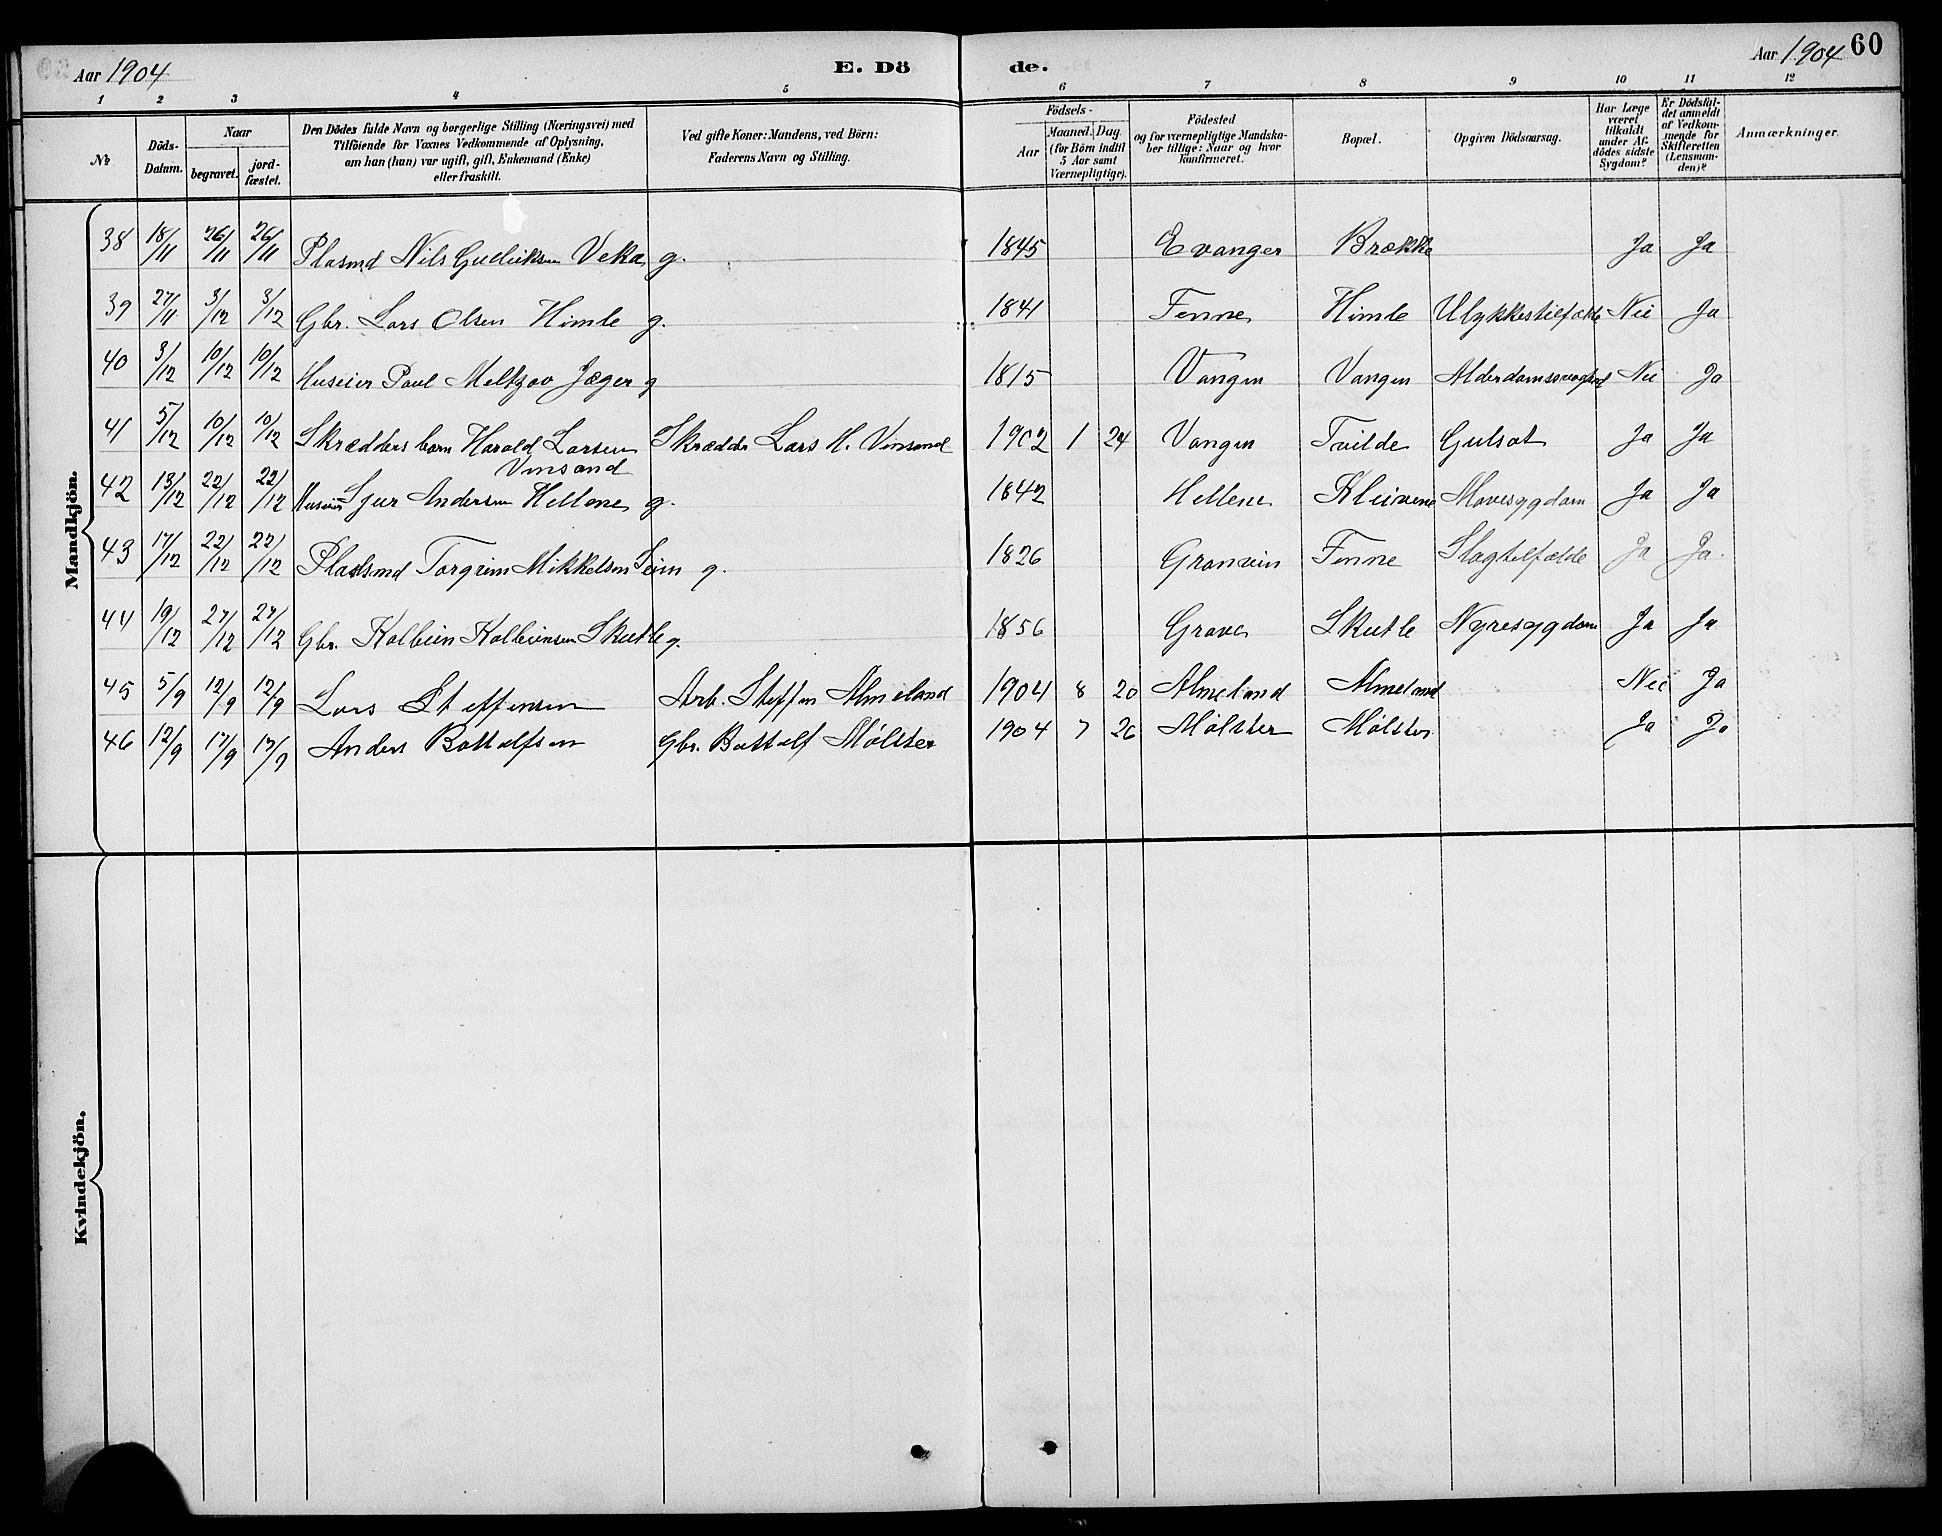 Aar 1904
E. Dö de.
Aar 1904 60
1 2 3 4 5 6 7 8 9 10 11 12
No
Döds-Datum.
Naar
begravet.
jord-fæstet.
Den Dödes fulde Navn og borgerlige Stilling (Næringsvei) med
Tilföiende for Voxnes Vedkommende af Oplysning,
om han (hun) var ugift, gift, Enkemand (Enke)
eller fraskilt.
Ved gifte Koner: Mandens, ved Börn:
Faderens Navn og Stilling.
Födsels-
Aar
Maaned. Dag.
(for Börn indtil
5 Aar samt
Værnepligtige).
Födested
og for værnepligtige Mandska-
ber tillige: Naar og hvor
konfirmeret.
Bopæl.
Opgiven Dödsaarsag.
Har Læge
været
tilkaldt
under Af-
dödes sidste
Sygdom?
Er Dödsfal-
det anmeldt
af Vedkom-
mende for
Skifteretten
(Lensman-
den)?
Anmærkninger.
Mandkjön.
38 18/11 26/11 26/11 Plasmd Nils Gudleiksen Veka g. 1845 Evanger Brække Ja Ja
39 27/11 3/12 3/12 Gbr. Lars Olsen Himle g. 1841 Fenne Himle Ulykkestilfælde Nei Ja
40 3/12 10/12 10/12 Huseier Povl Meltzov Jæger g 1815 Vangen Vangen Alderdomssvaghed Nei Ja
41 5/12 10/12 10/12 Skrædders barn Harald Larsen Vinsand Skrædder Lars H. Vinsand 1902 1 24 Vangen Tvilde Gulsot Ja Ja
42 13/12 22/12 22/12 Huseier Sjur Andersen Hellene g. 1842 Hellene Kleivene Mavesygdom Ja Ja
43 17/12 22/12 22/12 Pladsmd Torgrim Mikkelsen Seim g. 1826 Granvin Fenne Slagtilfælde Ja Ja.
44 19/12 27/12 27/12 Gbr. Kolbein Kolbeinsen Skutle g. 1856 Grove Skutle Nyresygdom Ja Ja
45 5/9 12/9 12/9 Lars Steffensen Arb. Steffen Almeland 1904 8 20 Almeland Almeland Nei Ja
46 12/9 17/9 17/9 Anders Bottolfsen Gbr. Bottolf Mølster 1904 7 26 Mølster Mølster Ja Ja
Kvindekjön.